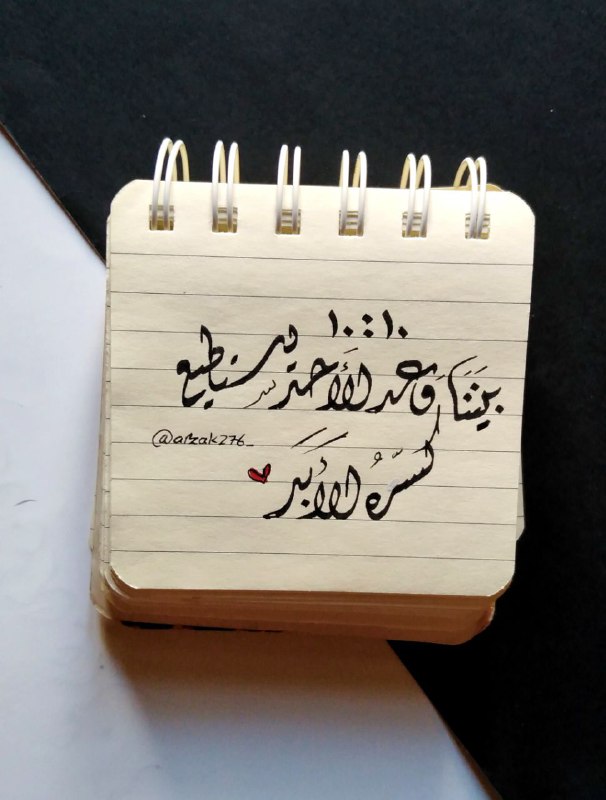 ١٠:١٠
بَيْنَنَا وَعد لا أَحَد يستطيع
كَسّرهُ للأبَد
@afzak276_